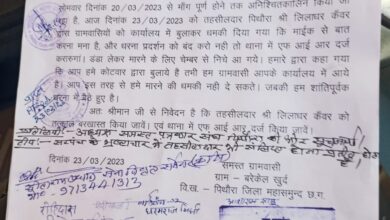 सोमवार दिनांक 20/03/2023 से माँग पूर्ण होने तक अनिश्चितकालीन किया जा
रहा है। आज दिनांक 23/03/2023 को तहसीलदार पिथौरा श्री लिलाधर कँवर
द्वारा ग्रामवासियों को कार्यालय में बुलाकर धमकी दिया गया कि माईक से बात
करना मना है, और धरना प्रदर्शन को बंद करो नही तो थाना में एफ आई आर दर्ज
कराउंगा। डंडा लेकर मारने के लिए चेम्बर से निचे आ गये। हमारे द्वारा कहा गया
कि आप हमे कोटवार द्वारा बुलाये है तभी हम ग्रामवासी आपके कार्यालय में आये
है। आप इस तरह से हमे मारने की धमकी नही दे सकते। जबकी हम शांतिपूर्वक
धरना में बैठे हुए है।
अतः श्रीमान जी से निवेदन है कि तहसीलदार श्री लिलाधर कँवर को
तत्काल बरखास्त किया जावें। एवं थाना में एफ आई आर दर्ज किया जावें।
प्रतिलिपि:- अध्यक्ष समस्त पत्रकार संघ पिथौरा की ओर सूचनार्थ
टीप:- सरपंच के भ्रष्टाचार में तहसीलदार
दिनांक 23/03/2023
9713441313
समस्त ग्रामवासी
ग्राम - बरेकेल खुर्द
वि.ख. - पिथौरा जिला महासमुन्द छ.ग.